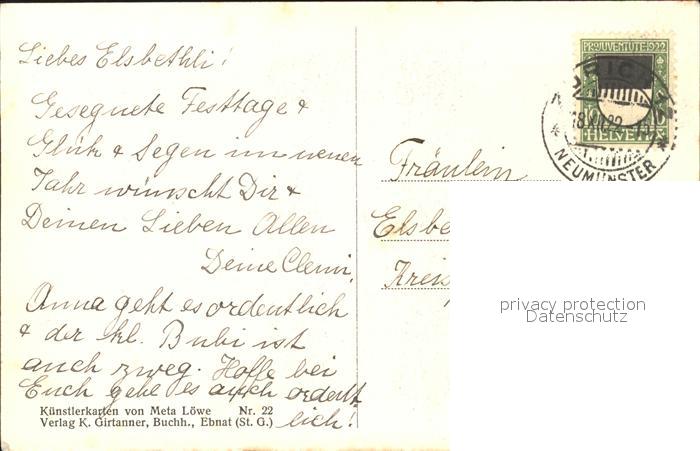 Liebes Elsbethli!
Gesegnete Festtage &
Glück & Segen im neuen
Jahr wünscht Dir &
Deinen Lieben Allen
Deine Clemi.
Anna geht es ordentlich
& der kl. Bubi ist
auch zweg. Hoffe bei
Euch gehe es auch ordent-
lich!
Künstlerkarten von Meta Löwe Nr. 22
Verlag K. Girtanner, Buchh., Ebnat (St. G.)
PRO JUVENTUTE 1922
HELVETIA
NEUMÜNSTER
Fräulein
Elsbe
Kreis
privacy protection
Datenschutz